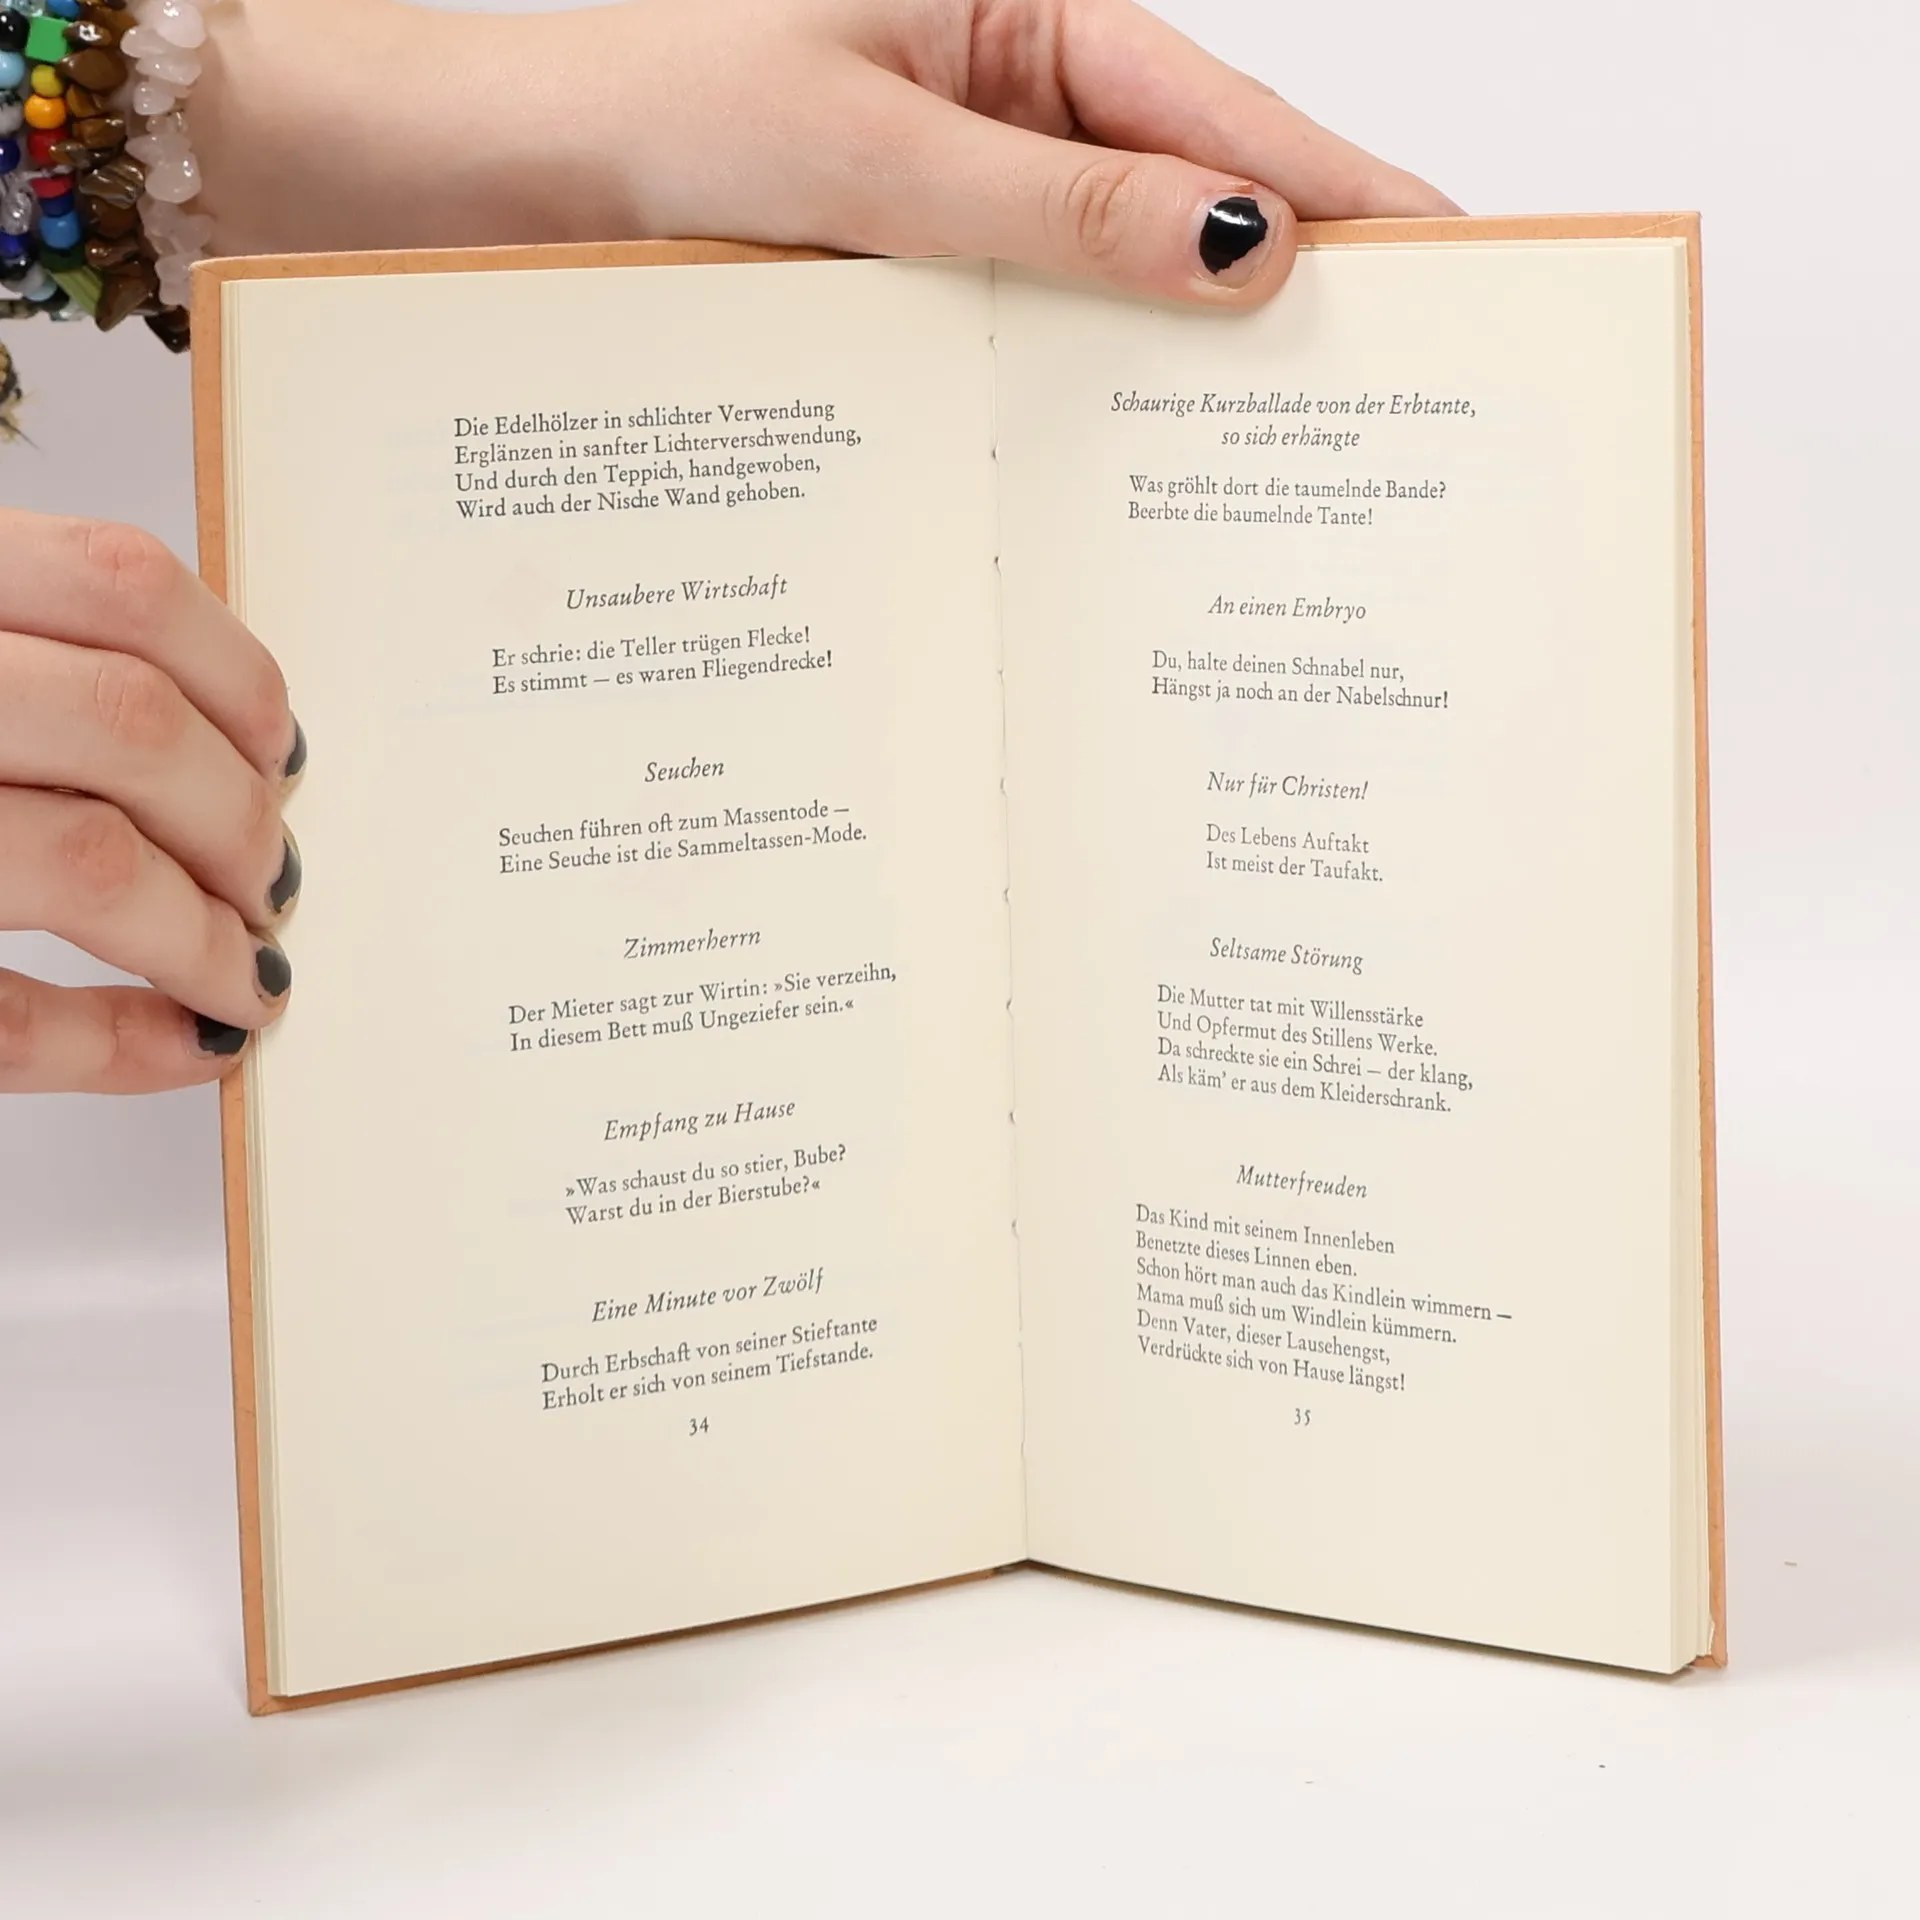 Die Edelhölzer in schlichter Verwendung
Erglänzen in sanfter Lichterverschwendung,
Und durch den Teppich, handgewoben,
Wird auch der Nische Wand gehoben.
Unsaubere Wirtschaft
Er schrie: die Teller trügen Flecke!
Es stimmt — es waren Fliegendrecke!
Seuchen
Seuchen führen oft zum Massentode —
Eine Seuche ist die Sammeltassen-Mode.
Zimmerherrn
Der Mieter sagt zur Wirtin: »Sie verzeihn,
In diesem Bett muß Ungeziefer sein.«
Empfang zu Hause
»Was schaust du so stier, Bube?
Warst du in der Bierstube?«
Eine Minute vor Zwölf
Durch Erbschaft von seiner Stieftante
Erholt er sich von seinem Tiefstande.
34
Schaurige Kurzballade von der Erbtante,
so sich erhängte
Was gröhlt dort die taumelnde Bande?
Beerbte die baumelnde Tante!
An einen Embryo
Du, halte deinen Schnabel nur,
Hängst ja noch an der Nabelschnur!
Nur für Christen!
Des Lebens Auftakt
Ist meist der Taufakt.
Seltsame Störung
Die Mutter tat mit Willensstärke
Und Opfermut des Stillens Werke.
Da schreckte sie ein Schrei — der klang,
Als käm' er aus dem Kleiderschrank.
Mutterfreuden
Das Kind mit seinem Innenleben
Benetzte dieses Linnen eben.
Schon hört man auch das Kindlein wimmern —
Mama muß sich um Windlein kümmern.
Denn Vater, dieser Lausehengst,
Verdrückte sich von Hause längst!
35